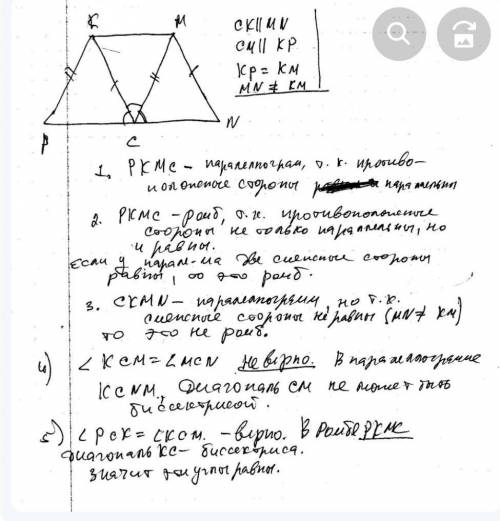 K M
P C N
CK∥MN
CM∥KP
KP = KM
MN ≠ KM
1. PKMC - паралелограм, т.к. противо-
положные стороны паралельны
2. PKMC - ромб, т.к. противоположные
стороны не только параллельны, но
и равны.
Если у парал-ма две смежные стороны
равны, то это ромб.
3. CKMN - паралелограмм, но т.к.
смежные стороны не равны (MN ≠ KM)
то это не ромб.
4) ∠KCM = ∠MCN неверно. В паралелограмме
KCNM, диагональ CM не может быть
биссектрисой.
5) ∠PCK = ∠KCM. - верно. В ромбе PKMC
диагональ KC - биссектриса.
Значит эти углы равны.